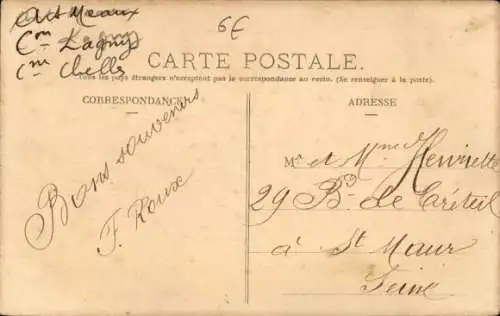 Art Meaux
Con Lagny
Con Chelles
6€
CARTE POSTALE.
Tous les pays étrangers n'acceptent pas la correspondance au verso. (Se renseigner à la poste).
CORRESPONDANCE
Bons souvenirs
F. Roux
ADRESSE
Mr et Mme Henriette
29 Bd de Créteil
à St Maur
Seine